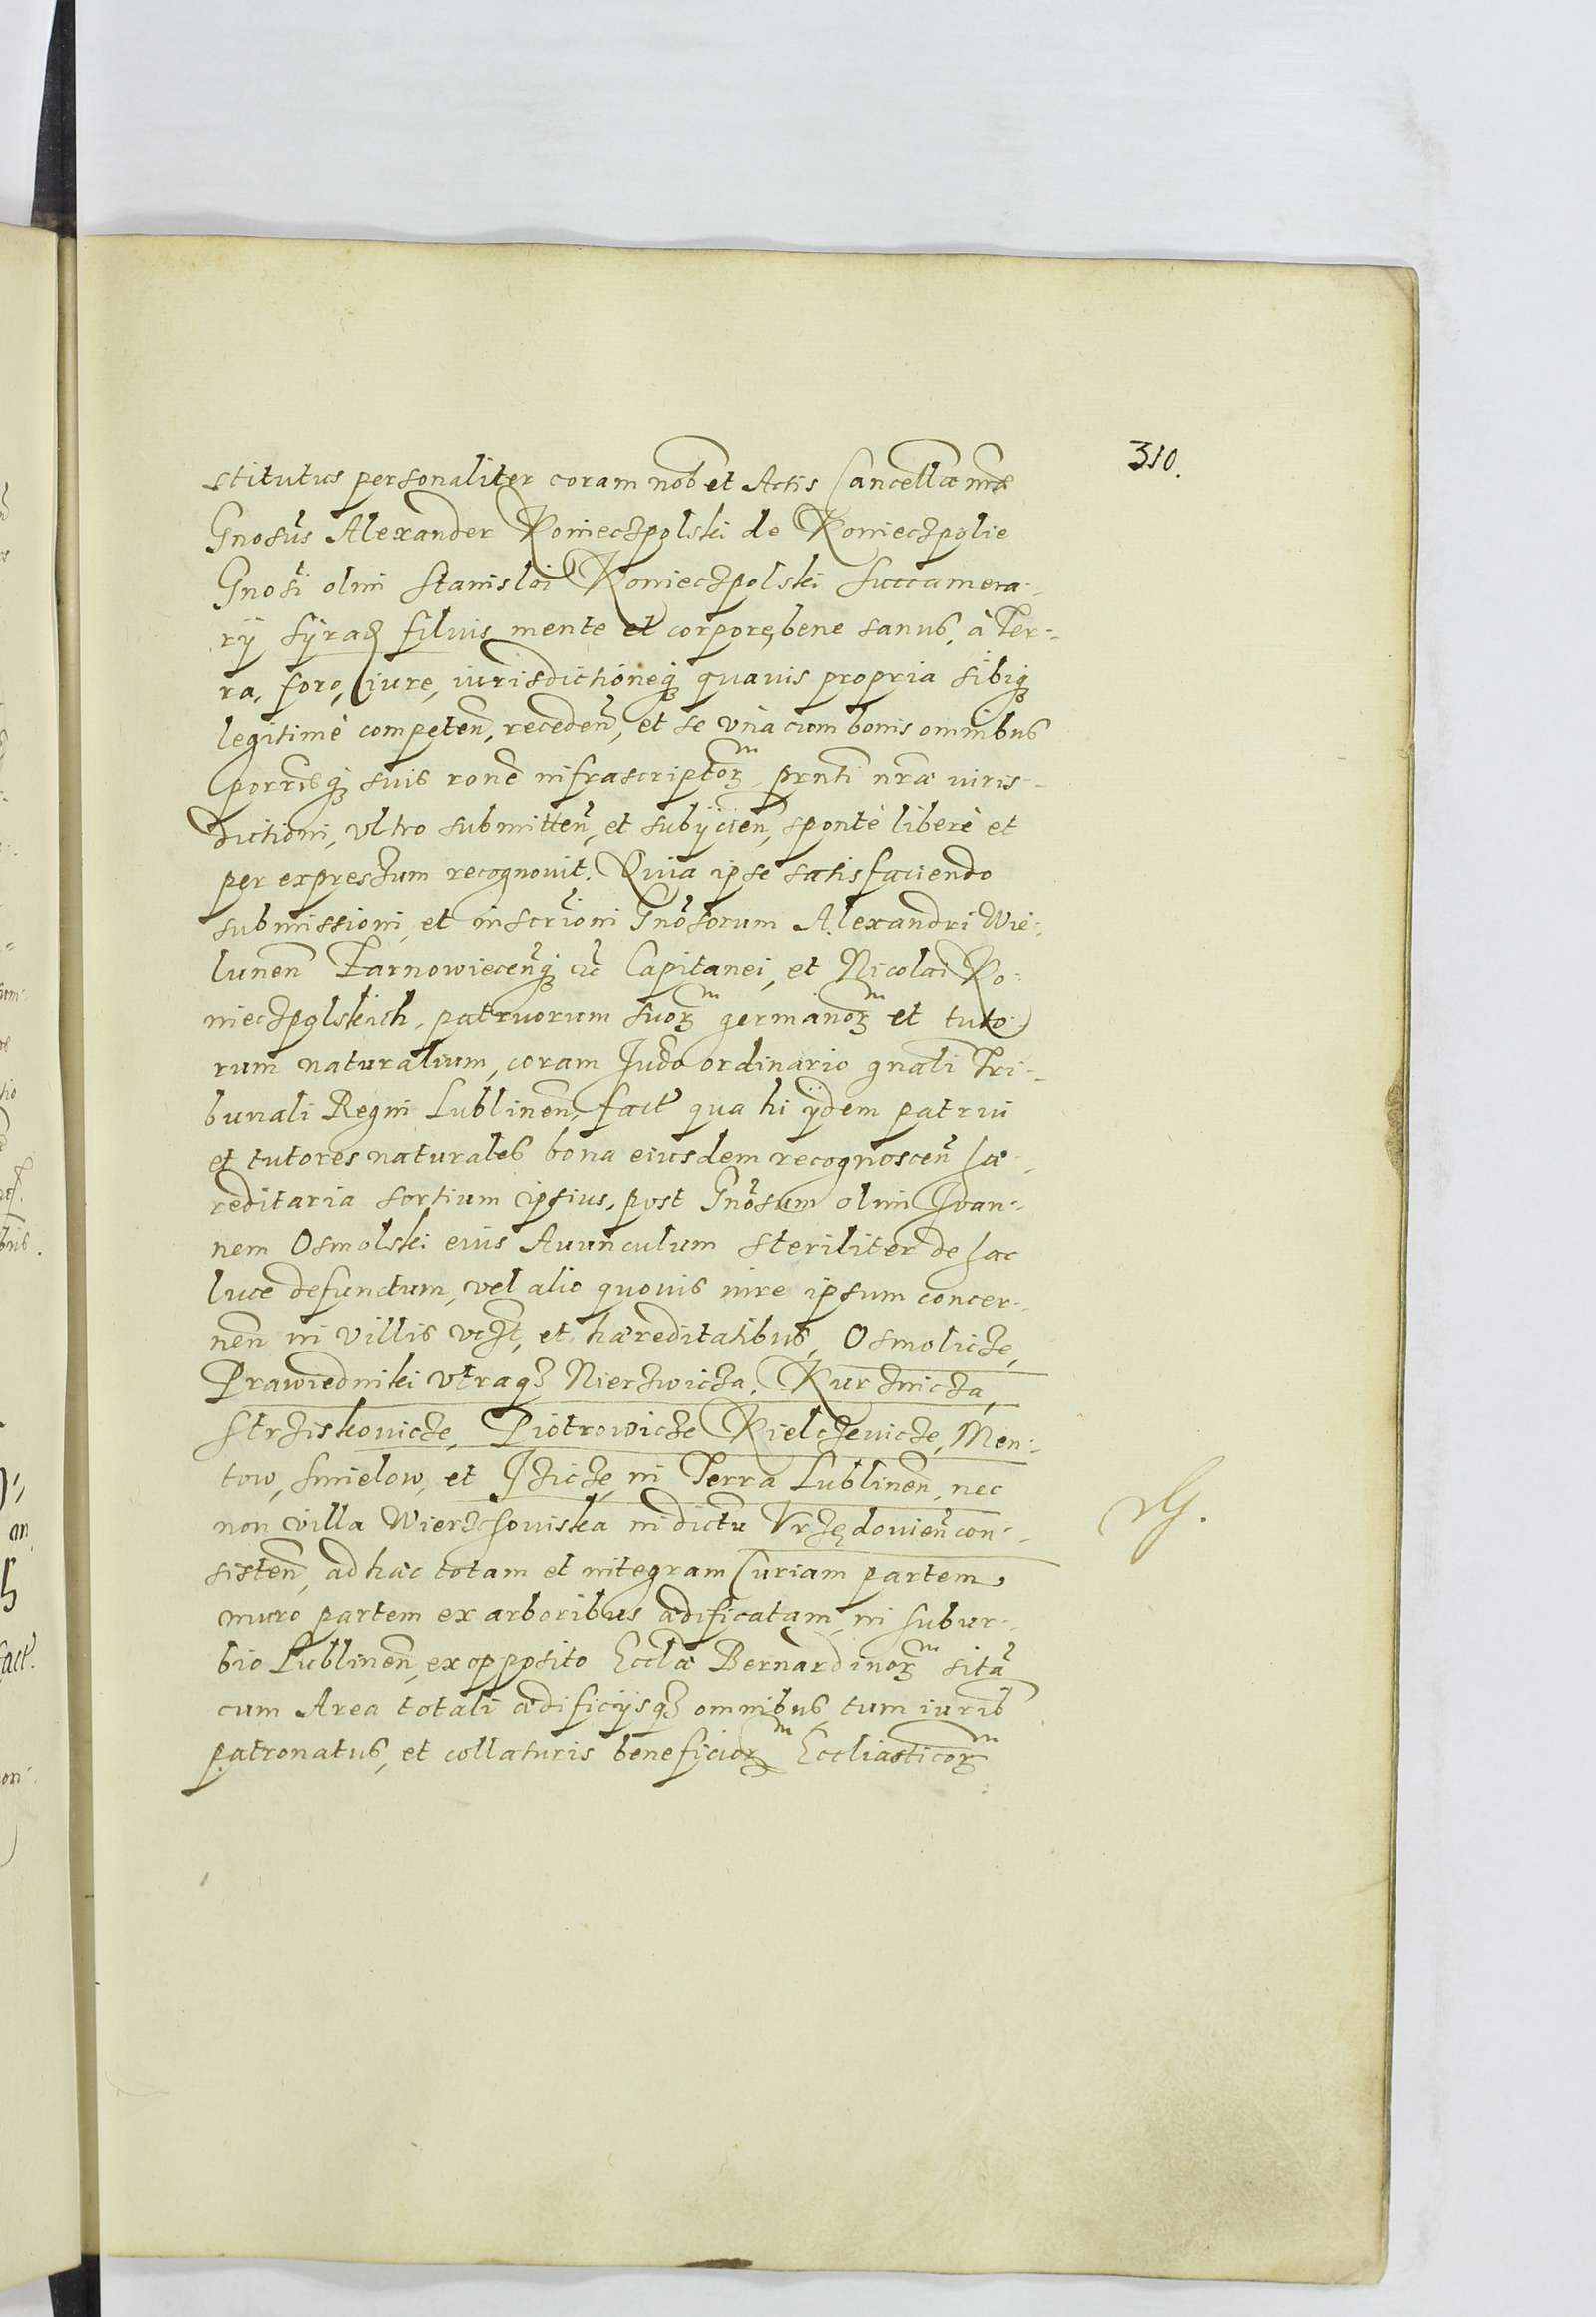 310.
stitutus personaliter coram nob et Actis Cancellæ nræ
Gnosus Alexander Konieczpolski de Konieczpolie
Gnosi olim Stanislai Konieczpolski Succamera-
rÿ Sÿrad filius mente et corpore bene sanus, à Ter-
ra, foro, iure, iurisdictioneq quavis propria sibiq
legitimè competen, receden, et se vnà cum bonis omnibus
suis rone infrascriptorum prnti nræ iuris-
dictioni, vltro submitten, et subÿcien, sponte liberè et
per expressum recognovit. Quia ipse satisfaciendo
submissioni et inscrioni Gnosorum Alexandri Wie-
lunen Tarnowiecenq zc Capitanei, et Nicolai Ko-
nieczpolskich, patruorum suorum germanorum et tuto-
rum naturalium, coram Judo ordinario gnali Tri-
bunali Regni Lublinen, fact qua hi ÿdem patrui
et tutores naturales bona eiusdem recognoscen hæ-
reditaria sortium ipsius, post Gnosum olim Joan-
nem Osmolski eius Avunculum steriliter de hac
luce defunctum, vel alio quovis iure ipsum concer-
nen in villis et hæreditatibus, Osmolicze,
Prawiedniki vtraq Nierzwicza, Kurznicza,
Strziskovicze, Piotrowicze Kielczevicze, Men-
tow, Smielow, et Jzicze, in Terra Lublinen, nec
non villa Wierzchoviska in dictu Vrzędovien con-
sisten, ad hæc totam et integram Curiam partem
muro partem ex arboribus ædificatam, in subur-
bio Lublinen, ex opposito Ecclæ Bernardinorum sitã
cum Area totali ædificÿsq omnibus, tum iurib
patronatus, et collaturis beneficiorum Eccliasticorum